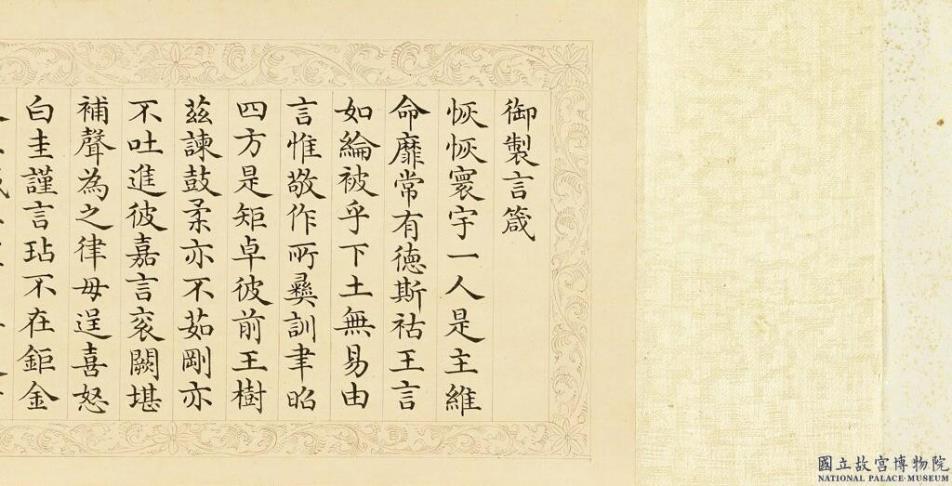 御製言箴
恢恢寰宇一人是主維
命靡常有德斯祜王言
如綸被乎下土無易由
言惟敬作所彝訓聿昭
四方是矩卓彼前王樹
茲諫鼓柔亦不茹剛亦
不吐進彼嘉言袞闕堪
補聲為之律毋逞喜怒
白圭謹言玷不在鉅金
國立故宮博物院
NATIONAL PALACE MUSEUM